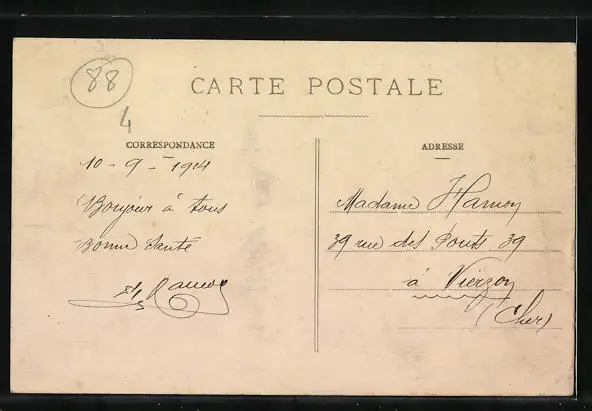 88
4
CARTE POSTALE
CORRESPONDANCE
ADRESSE
10 - 9 - 1904
Bonjour à tous
Bonne Santé
Madame Hamoy
39 rue des Ponts 39
à Vierzon
(Cher)